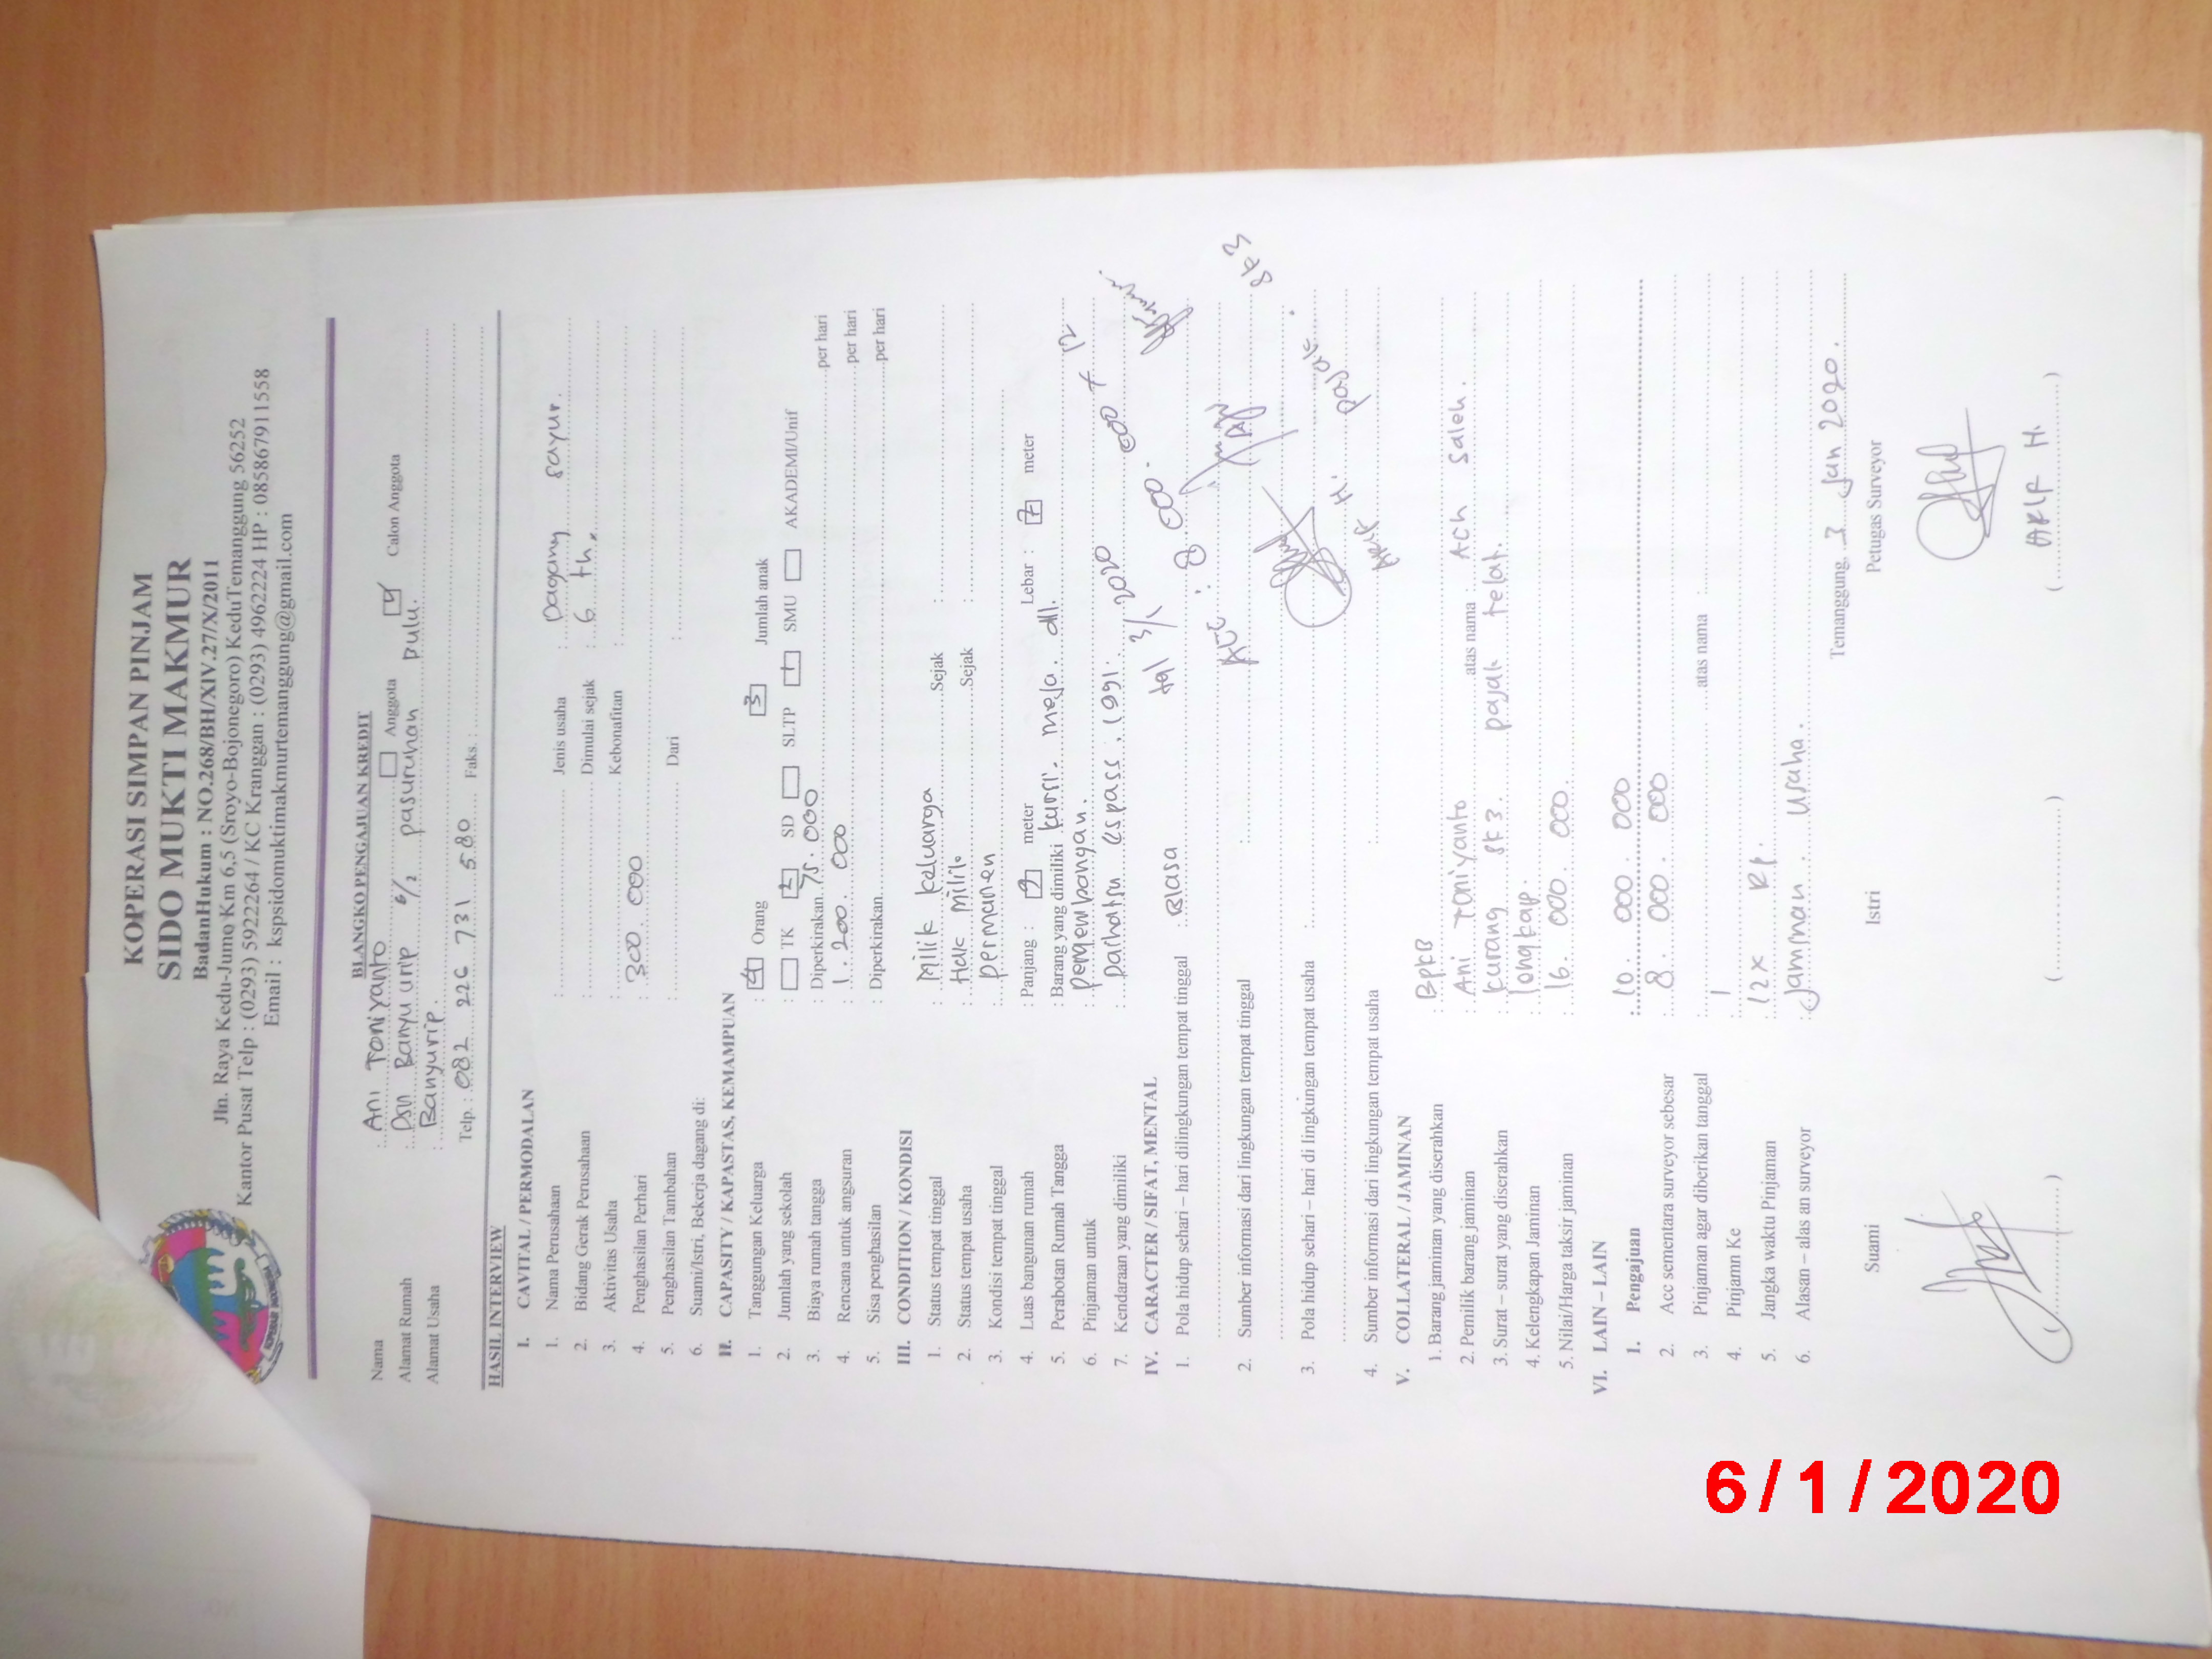 KOPERASI SIMPAN PINJAM
SIDO MUKTI MAKMUR
BadanHukum : NO.268/BH/XIV.27/X/2011
Jln. Raya Kedu-Jumo Km 6,5 (Sroyo-Bojonegoro) KeduTemanggung 56252
Kantor Pusat Telp : (0293) 5922264 / KC Kranggan : (0293) 4962224 HP : 085867911558
Email : kspsidomuktimakmurtemanggung@gmail.com
BLANGKO PENGAJUAN KREDIT
Nama : Ani Toniyanto Anggota Calon Anggota
Alamat Rumah : Dsn Banyu urip 6/2 pasuruhan pulu.
Alamat Usaha : Banyurip.
Telp. : 082 226 731 580 Faks. :
HASIL INTERVIEW
I. CAVITAL / PERMODALAN
1. Nama Perusahaan : Jenis usaha : Dagang sayur.
2. Bidang Gerak Perusahaan : Dimulai sejak : 6 th.
3. Aktivitas Usaha : Kebonafitan :
4. Penghasilan Perhari : 300.000
5. Penghasilan Tambahan : Dari :
6. Suami/Istri, Bekerja dagang di: :
II. CAPASITY / KAPASTAS, KEMAMPUAN
1. Tanggungan Keluarga : 4 Orang 3 Jumlah anak
2. Jumlah yang sekolah : TK SD SLTP SMU AKADEMI/Unif
3. Biaya rumah tangga : Diperkirakan 75.000 per hari
4. Rencana untuk angsuran : 1.200.000 per hari
5. Sisa penghasilan : Diperkirakan per hari
III. CONDITION / KONDISI
1. Status tempat tinggal : Milik keluarga Sejak :
2. Status tempat usaha : Hak Milik Sejak :
3. Kondisi tempat tinggal : permanen
4. Luas bangunan rumah : Panjang : 9 meter Lebar : 7 meter
5. Perabotan Rumah Tangga : Barang yang dimiliki kursi. meja. dll.
6. Pinjaman untuk : pengembangan.
7. Kendaraan yang dimiliki : Daihatsu Espass. 1991.
tgl 3/1 2020
8.000.000 x 12
IV. CARACTER / SIFAT, MENTAL
1. Pola hidup sehari – hari dilingkungan tempat tinggal : Biasa
ACC : 8.000.
2. Sumber informasi dari lingkungan tempat tinggal :
3. Pola hidup sehari – hari di lingkungan tempat usaha :
Arif H. pajak. sk3
4. Sumber informasi dari lingkungan tempat usaha :
V. COLLATERAL / JAMINAN
1. Barang jaminan yang diserahkan : BPKB
2. Pemilik barang jaminan : Ani Toniyanto atas nama : Ach Saleh.
3. Surat – surat yang diserahkan : kurang sk3. pajak telat.
4. Kelengkapan Jaminan : longkap.
5. Nilai/Harga taksir jaminan : 16.000.000.
VI. LAIN – LAIN
1. Pengajuan : 10.000.000
2. Acc sementara surveyor sebesar : 8.000.000
3. Pinjaman agar diberikan tanggal : atas nama :
4. Pinjamn Ke : 1
5. Jangka waktu Pinjaman : 12x Rp.
6. Alasan – alas an surveyor : Jaminan. Usaha.
Temanggung, 3 Jan 2020.
Suami Istri Petugas Surveyor
(............) (............) ( ARIF H. )
6/1/2020